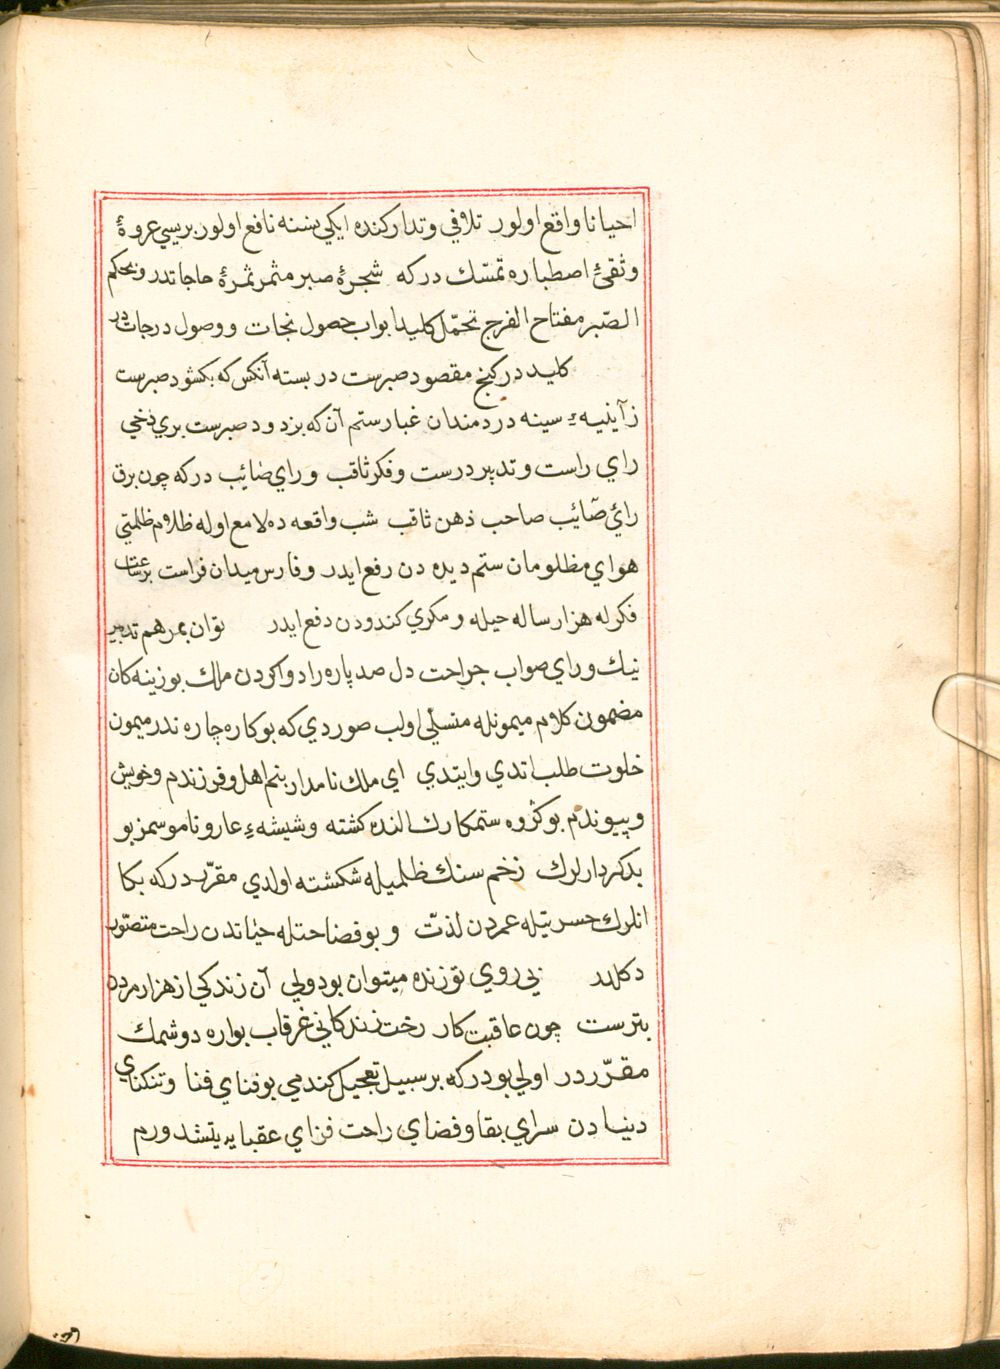 احيانا واقع اولور تلافي وتداركنده ايكي نسنه نافع اولور بريسي عروۀ
وثقئ اصطباره تمسّك دركه شجرۀ صبر مثمر ثمرۀ حاجاتدر وبحكم
الصّبر مفتاح الفرج تحمّل كليد ابواب حصول نجات ووصول درجاتدر
كليد در كنج مقصود صبرست در بسته آنكس كه بكشود صبرست
زآينيهء سينه دردمندان غبار ستم آن كه بزدود صبرست بري دخي
راي راست وتدبير درست وفكر ثاقب وراي صائب دركه چون برق
رائ صائب صاحب ذهن ثاقب شب واقعه ده لامع اوله ظلام ظلمتي
هواي مظلومان ستم ديده دن رفع ايدر وفارس ميدان فراست
فكرله هزار ساله حيله ومكري كندودن دفع ايدر توان بمرهم تدبير
نيك وراي صواب جراحت دل صد پاره را دوا كردن ملك بوزينه كان
مضمون كلام ميمونله متسلّي اولب صوردي كه بو كاره چاره ندر ميمون
خلوت طلب اتدي وايتدي اي ملك نامدار بنم اهل وفرزندم وخويش
وپيوندم بو كروه ستمكارك الندن كشته وشيشهء عار وناموسمز بو
بدكردارلرك زخم سنك ظلميله شكشته اولدي مقرّر دركه بكا
انلرك حسرتيله عمردن لذّت وبو فضاحتله حياتدن راحت متصّور
دكلدر بي روي تو زنده ميتوان بود ولي آن زندكي از هزار مرده
بترست چون عاقبت كار رخت زندكاني غرقاب بواره دوشمك
مقرّردر اولي بودركه برسبيل تعجيل كندمي بو فناي فنا وتنكناي
دنيادن سراي بقا وفضاي راحت فزاي عقبايه يتشدورم